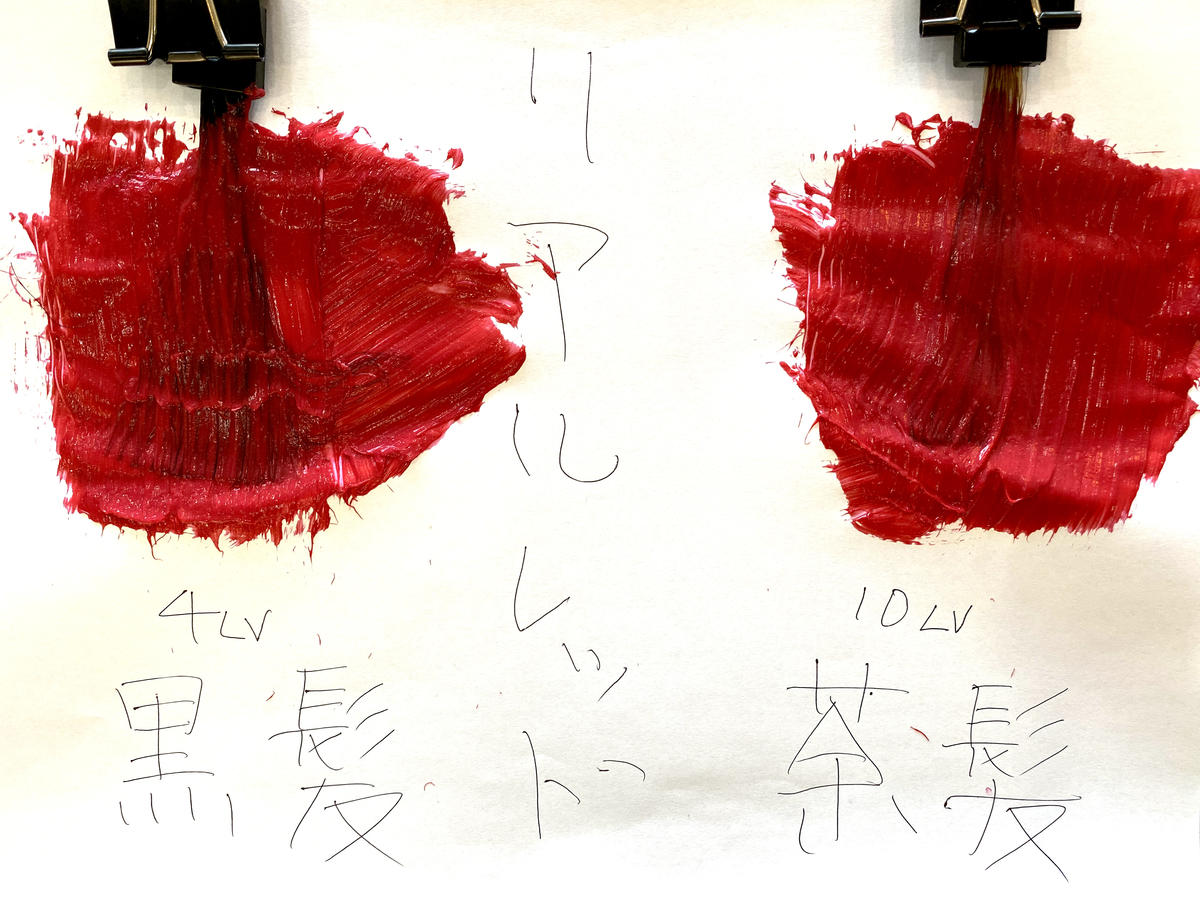 リアルレッド
4LV
黒髪
10LV
茶髪